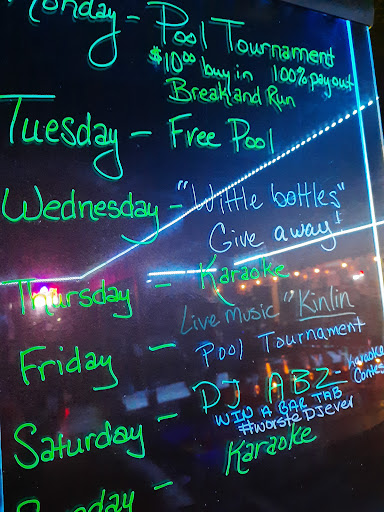 Monday - Pool Tournament
$10⁰⁰ buy in 100% payout
Break and Run
Tuesday - Free Pool
Wednesday - "Wittle bottles"
Give away!
Thursday - Karaoke
Live Music "Kinlin
Friday - Pool Tournament
DJ ABZ - Karaoke
Contes
WIN A BAR TAB
#worsteDJever
Saturday - Karaoke
Sunday -